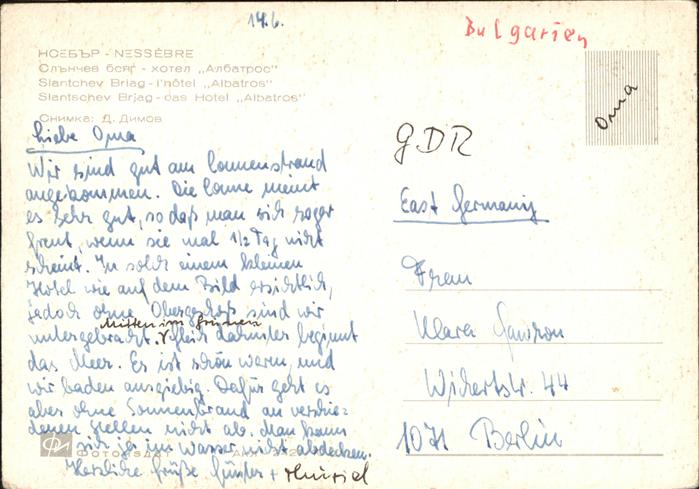 14.6.
Bulgarien
НСЕБЪР - NESSÈBRE
Слънчев бряг - хотел „Албатрос"
Slantchev Briag - l'hôtel „Albatros"
Slantschev Brjag - das Hotel „Albatros"
Снимка: Д. Димов
Oma
Liebe Oma
Wir sind gut am Sonnenstrand
angekommen. Die Sonne meint
es sehr gut, so daß man sich sogar
freut, wenn sie mal 1/2 Tag nicht
scheint. In solch einem kleinen
Hotel wie auf dem Bild ersichtlich,
jedoch ohne Obergeschoß sind wir
Mitten im Grünen
untergebracht. Gleich dahinter beginnt
das Meer. Es ist schön warm, und
wir baden ausgiebig. Dafür geht es
aber ohne Sonnenbrand an verschie-
denen Stellen nicht ab. Man kann
sich ja im Wasser nicht abdecken.
Herzliche Grüße Günter +
GDR
East Germany
Frau
Klara
Wichertstr. 44
1071 Berlin
Фотоиздат